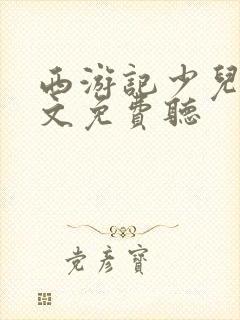 西游記少兒
文免費聽
党彦寶